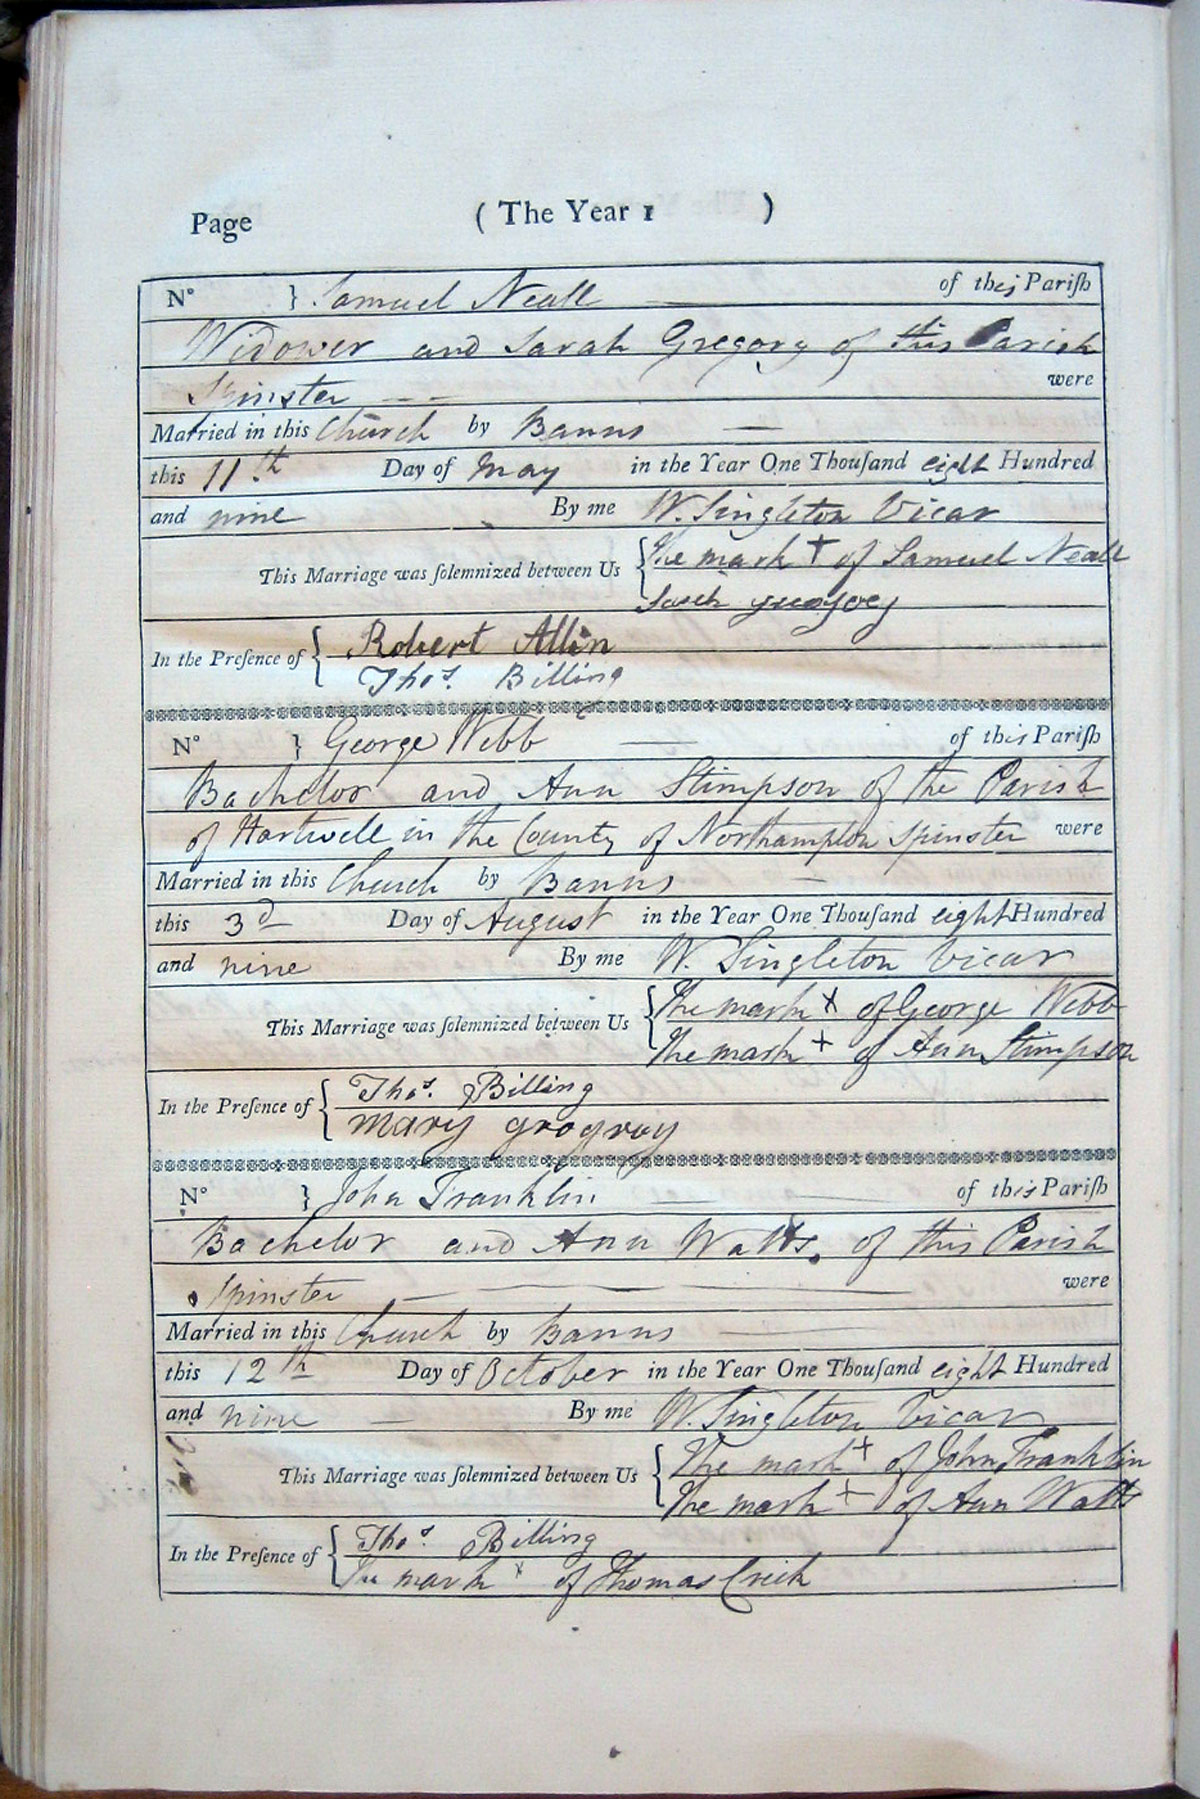 Page ( The Year 1 )
No } Samuel Neall of this Pariſh
Widower and Sarah Gregory of this Parish
Spinster were
Married in this Church by Banns
this 11th Day of May in the Year One Thouſand eight Hundred
and nine By me W. Singleton Vicar
This Marriage was ſolemnized between Us { The mark + of Samuel Neall
In the Preſence of { Robert Allin
Thos. Billing
No } George Webb of this Pariſh
Bachelor and Ann Stimpson of the Parish
of Hartwell in the County of Northampton Spinster were
Married in this Church by Banns
this 3d Day of August in the Year One Thouſand eight Hundred
and nine By me W. Singleton Vicar
This Marriage was ſolemnized between Us { The mark x of George Webb
The mark + of Ann Stimpson
In the Preſence of { Thos. Billing
mary grogroy
No } John Franklin of this Pariſh
Bachelor and Ann Watts. of this Parish
Spinster were
Married in this Church by Banns
this 12th Day of October in the Year One Thouſand eight Hundred
and nine By me W. Singleton Vicar
This Marriage was ſolemnized between Us { The mark + of John Franklin
The mark + of Ann Watts
In the Preſence of { Thos. Billing
The mark x of Thomas Crick